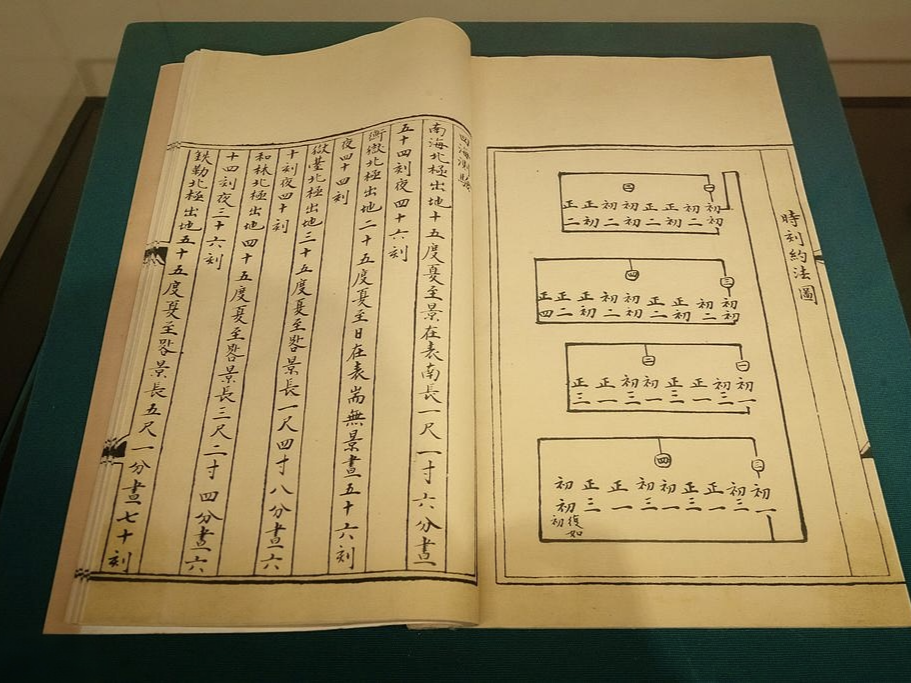 時刻約法圖
一
二
初初
初二
正初
正二
初初
初二
正初
正二
三
四
初初
初二
正初
正二
初初
初二
正初
正二
正四
一
二
初一
初三
正一
正三
初一
初三
正一
正三
三
四
初一
初三
正一
正三
初一
初三
正一
正三
初初
復如初
四海測驗
南海北極出地十五度夏至景在表南長一尺一寸六分晝
五十四刻夜四十六刻
衡嶽北極出地二十五度夏至日在表耑無景晝五十六刻
夜四十四刻
嶽臺北極出地三十五度夏至晷景長一尺四寸八分晝六
十刻夜四十刻
和林北極出地四十五度夏至晷景長三尺二寸四分晝六
十四刻夜三十六刻
鐵勒北極出地五十五度夏至晷景長五尺一分晝七十刻